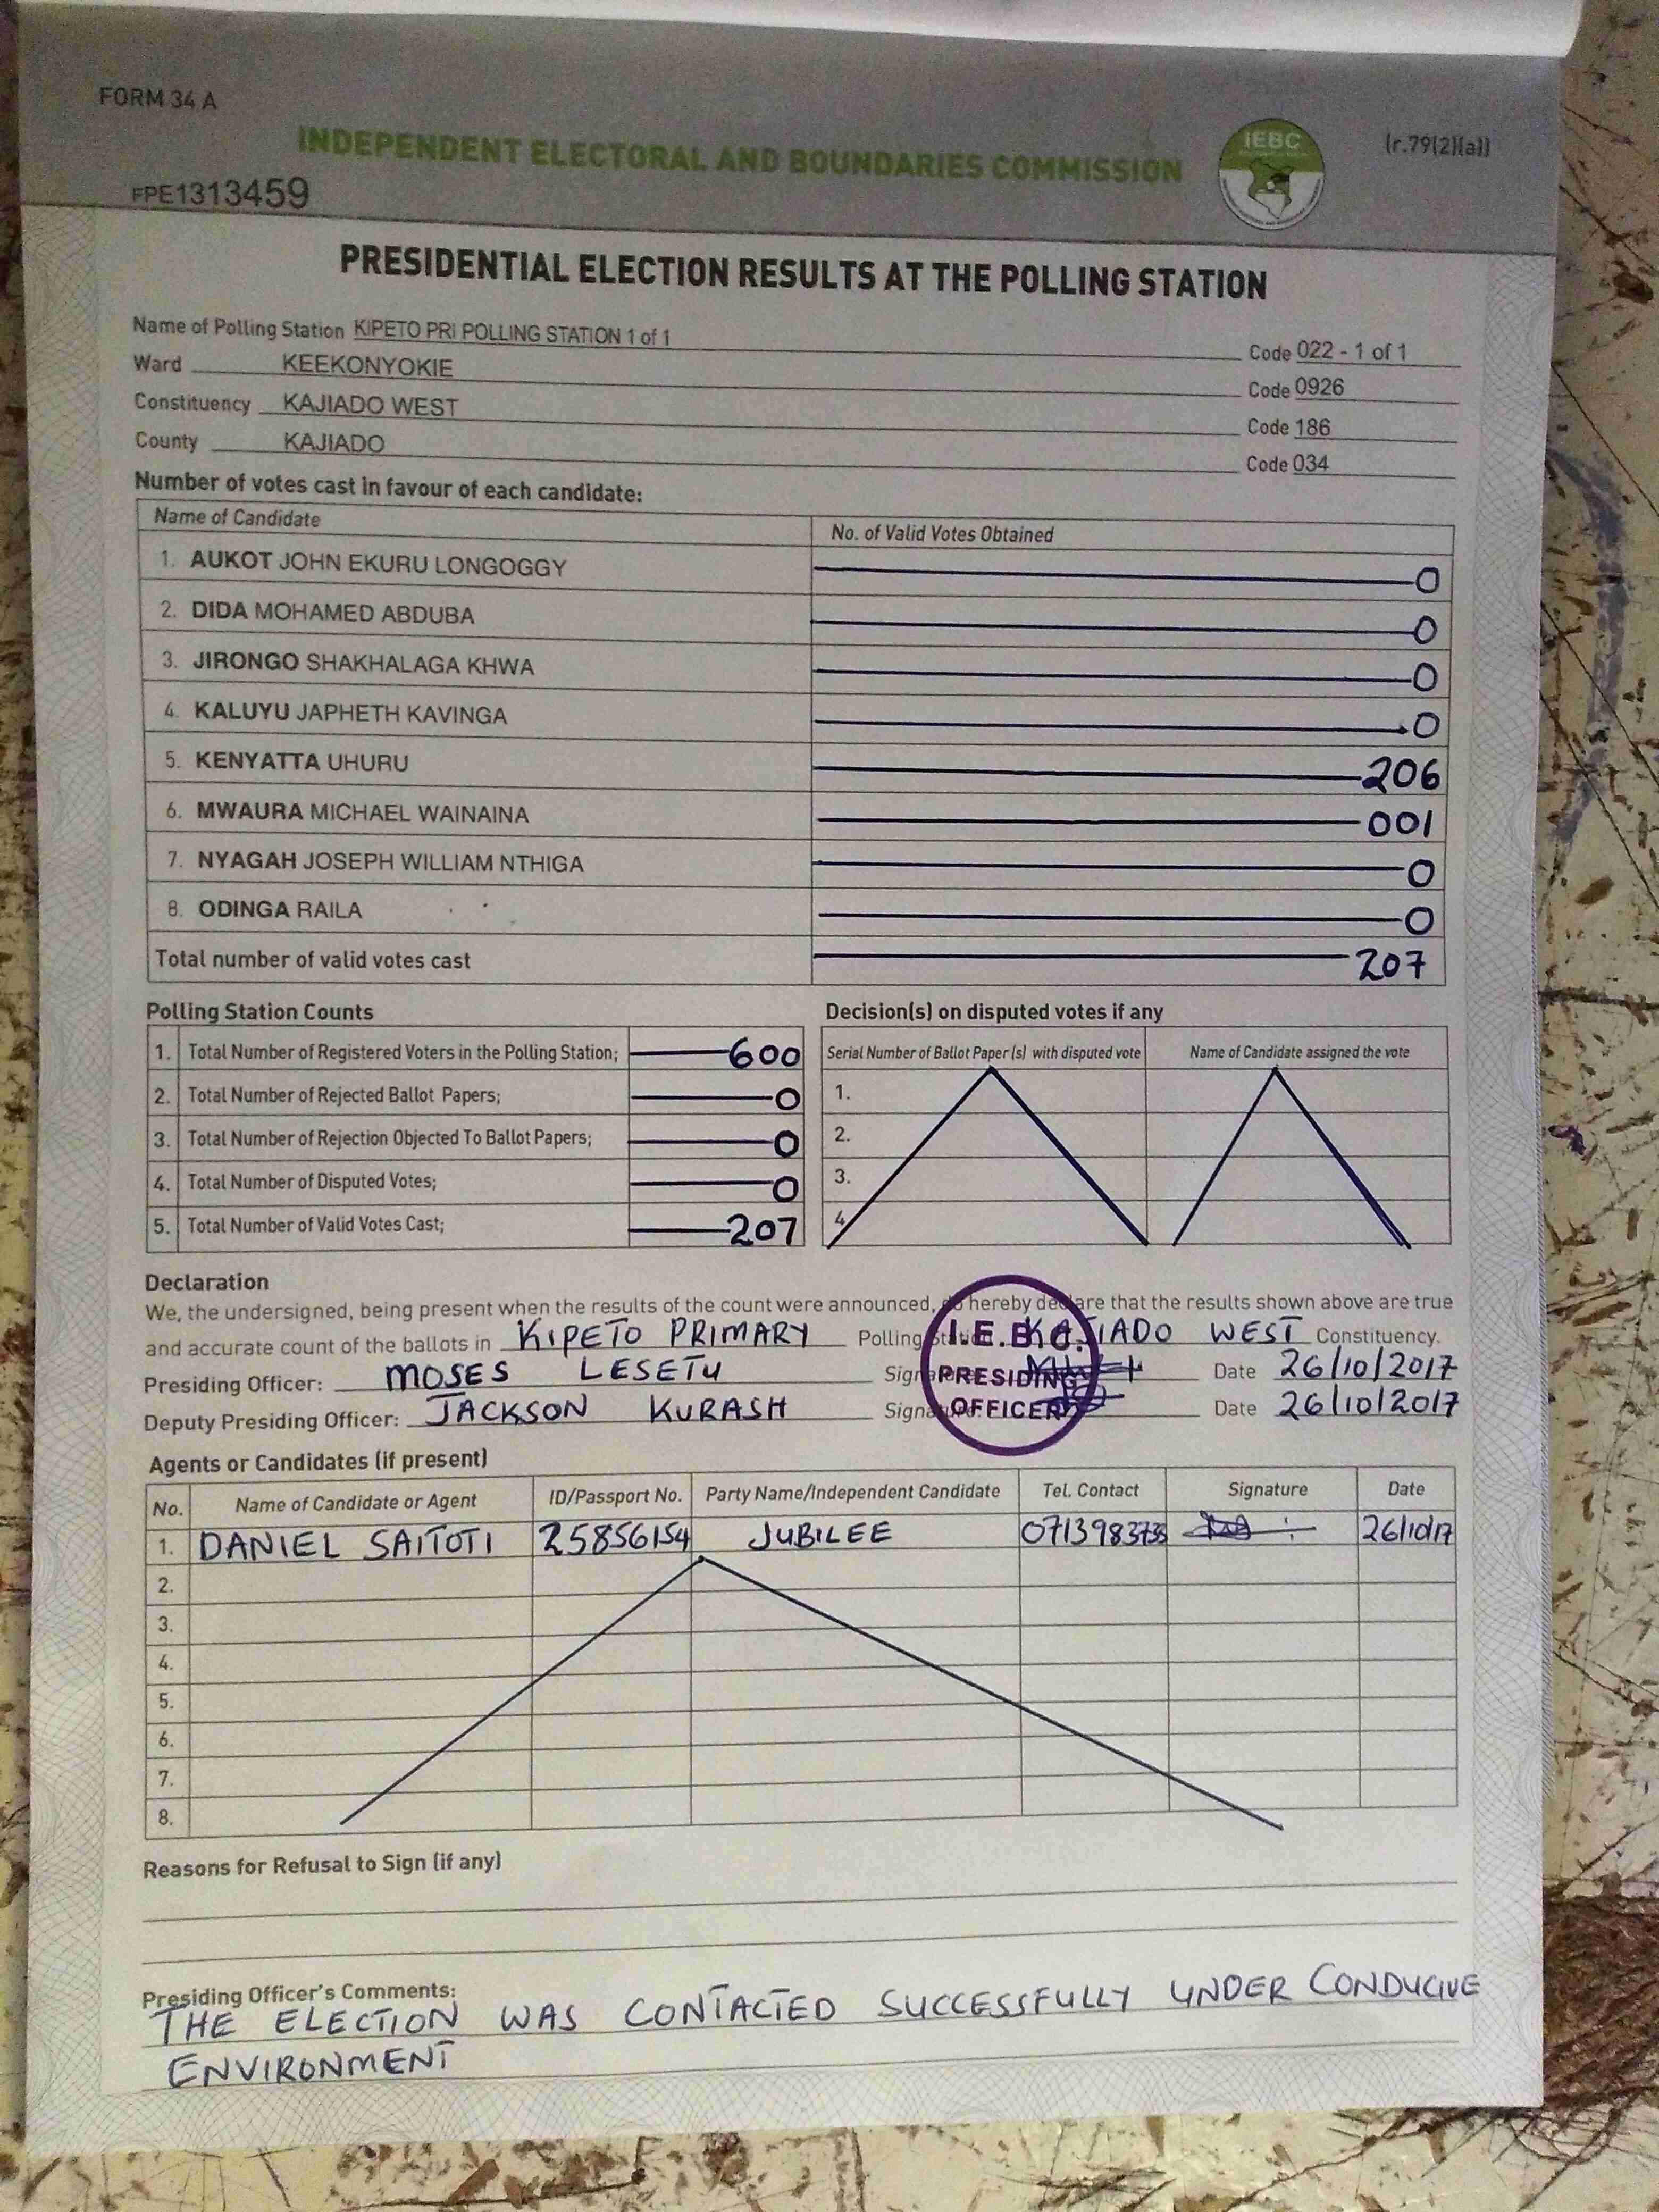 FORM 34 A
INDEPENDENT ELECTORAL AND BOUNDARIES COMMISSION
IEBC
(r.79(2)(a))
FPE1313459
PRESIDENTIAL ELECTION RESULTS AT THE POLLING STATION
Name of Polling Station KIPETO PRI POLLING STATION 1 of 1 Code 022 - 1 of 1
Ward KEEKONYOKIE Code 0926
Constituency KAJIADO WEST Code 186
County KAJIADO Code 034
Number of votes cast in favour of each candidate:
Name of Candidate No. of Valid Votes Obtained
1. AUKOT JOHN EKURU LONGOGGY 0
2. DIDA MOHAMED ABDUBA 0
3. JIRONGO SHAKHALAGA KHWA 0
4. KALUYU JAPHETH KAVINGA 0
5. KENYATTA UHURU 206
6. MWAURA MICHAEL WAINAINA 001
7. NYAGAH JOSEPH WILLIAM NTHIGA 0
8. ODINGA RAILA 0
Total number of valid votes cast 207
Polling Station Counts
1. Total Number of Registered Voters in the Polling Station; 600
2. Total Number of Rejected Ballot Papers; 0
3. Total Number of Rejection Objected To Ballot Papers; 0
4. Total Number of Disputed Votes; 0
5. Total Number of Valid Votes Cast; 207
Decision(s) on disputed votes if any
Serial Number of Ballot Paper (s) with disputed vote Name of Candidate assigned the vote
1.
2.
3.
4.
Declaration
We, the undersigned, being present when the results of the count were announced, do hereby declare that the results shown above are true
and accurate count of the ballots in KIPETO PRIMARY Polling Station KAJIADO WEST Constituency.
Presiding Officer: MOSES LESETU Date 26/10/2017
Deputy Presiding Officer: JACKSON KURASH Signature: Date 26/10/2017
I.E.B.C.
PRESIDING
OFFICER
Agents or Candidates (if present)
No. Name of Candidate or Agent ID/Passport No. Party Name/Independent Candidate Tel. Contact Signature Date
1. DANIEL SAITOTI 25856154 JUBILEE 0713983735 26/10/17
2.
3.
4.
5.
6.
7.
8.
Reasons for Refusal to Sign (if any)
Presiding Officer's Comments:
THE ELECTION WAS CONTACTED SUCCESSFULLY UNDER CONDUCIVE
ENVIRONMENT